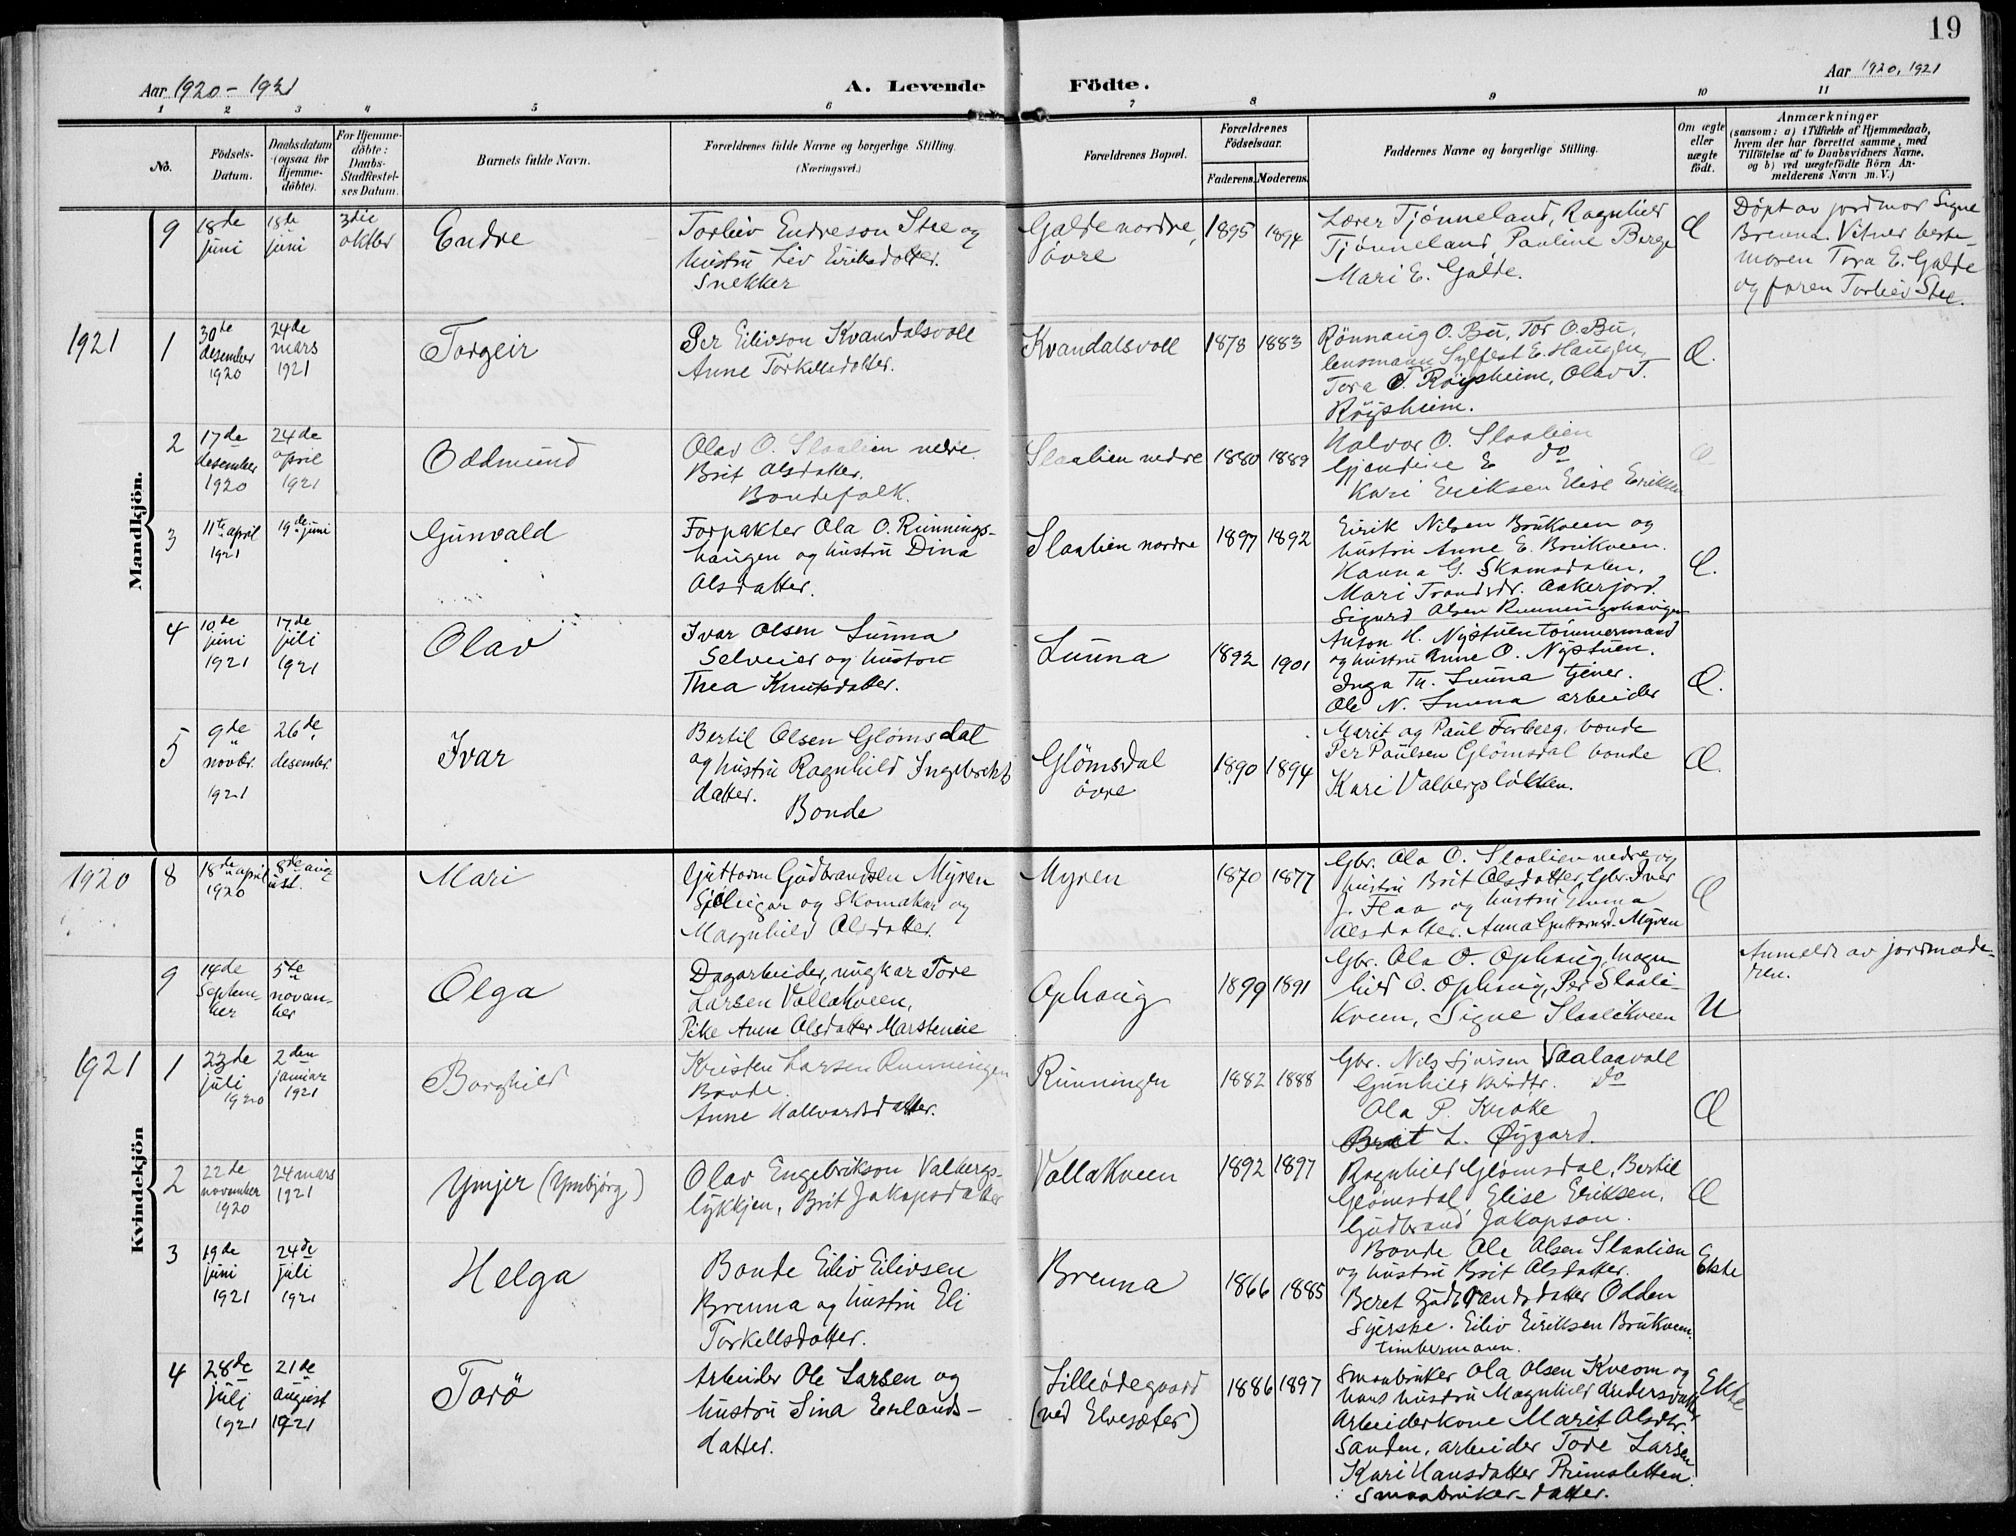 19
Aar 1920 - 1921
A. Levende Födte.
Aar 1920, 1921
1 2 3 4 5 6 7 8 9 10 11
No.
Födsels-
Datum.
Daabsdatum
(ogsaa for
Hjemme-
döbte).
For Hjemme-
döbte:
Daabs-
Stadfæstel-
ses Datum.
Barnets fulde Navn.
Forældrenes fulde Navne og borgerlige Stilling.
(Næringsvei.)
Forældrenes Bopæl.
Forældrenes
Födselsaar.
Faderens. Moderens.
Faddernes Navne og borgerlige Stilling.
Om ægte
eller
uægte
født.
Anmærkninger
(saasom: a) i Tilfælde af Hjemmedaab,
hvem der har forrettet samme, med
Tilføielse af to Daabsvidners Navne,
og b) ved uægtefödte Börn An-
melderens Navn m. V.)
Mandkjön.
9
18de
juni
18de
juni
3die
oktbr
Endre
Torleiv Endreson Stee og
hustru Liv Eiriksdatter.
Snekker
Galde nordre,
övre
1895 1894
Lærer Tjønneland, Ragnhild
Tjønneland Pauline Berge
Mari E. Galde.
Æ
Döpt av jordmor Signe
Brenna. Vitner beste-
moren Tora E. Galde
og faren Torleiv Stee.
1921
1
30te
desember
1920
24de
mars
1921
Torgeir
Per Eilivson Kvandalsvoll
Anne Torkellsdatter.
Kvandalsvoll
1878 1883
Rönnaug O. Bu, Tor O. Bu,
lensmann Sylfest E. Haugen,
Tora T. Röysheim, Olav T.
Röysheim.
Æ.
2
17de
desember
1920
24de
april
1921
Oddmund
Olav O. Slaalien nedre.
Brit Olsdatter.
Bondefolk.
Slaalien nedre
1880 1889
Halvor O. Slaalien
Gjendine E do
Kari Eriksen Elise Eriksen
Æ
3
11te april
1921
19de juni
Gunvald
Forpakter Ola O. Runnings-
haugen og hustru Dina
Olsdatter.
Slaalien nordre
1897 1892
Eirik Nilsen Brukveen og
hustru Anne E. Brukveen.
Hanna G. Skamsdalen,
Mari Trondsdr. Aakerjord.
Sigurd Olsen Runningshaugen
Æ.
4
10de
juni
1921
17de
juli
1921
Olav
Ivar Olsen Sunna
Selveier og hustru
Thea Knutsdatter.
Sunna
1892 1901
Anton H. Nystuen tømmermand
og hustru Anne O. Nystuen.
Inga Th. Sunna tjener.
Ole N. Sunna arbeider
Æ.
5
9de
novbr.
1921
26de
desember.
Ivar
Bertil Olsen Glömsdal
og hustru Ragnhild Ingebrikts
datter.
Bonde
Glömsdal
övre
1890 1894
Marit og Paul Forberg, bonde
Per Paulsen Glömsdal bonde
Kari Valbergsløkken.
Æ.
Kvindekjön
1920
8
18de april
1920
8de aug-
ust.
Mari
Guttorm Gudbrandsen Myren
og Skomaker og
Magnhild Olsdatter.
Myren
1870 1877
Gbr. Ola O. Slaalien nedre og
hustru Brit Olsdatter, Gbr. Iver
J. Flaa og hustru Emma
Olsdatter. Anna Guttormsd. Myren
Æ
9
14de
Septem-
ber
5te
novem-
ber
Olga
Dagarbeider, ungkar Tore
Larsen Vollakveen,
Pike Anne Olsdatter Marsteneie
Ophaug
1899 1891
Gbr. Ola O. Ophaug, Magn
hild O. Ophaug, Per Slaali-
kveen, Signe Slaalikveen
U
Anmeldt av jordmode-
ren.
1921
1
23de
juli
1920
2den
januar
1921
Borghild
Kristen Larsen Runningen
Bonde.
Anne Hallvardsdatter.
Runningen
1882 1888
Gbr. Nils Sjursen Vaalaavoll
Gunhild do
Ola P. Kroke
Brit L. Øygard.
Æ
2
22de
november
1920
24 mars
1921
Ymjer (Ymbjørg)
Olav Engebrikson Valbergs-
lykkjen, Brit Jakopsdatter
Vollakveen
1892 1897
Ragnhild Glömsdal, Bertil
Glömsdal, Elise Eriksen,
Gudbrand Jakopson.
Æ
3
19de
juni
1921
24de
juli
1921
Helga
Bonde Eiliv Eilivsen
Brenna og hustru Eli
Torkellsdatter.
Brenna
1866 1885
Bonde Ole Olsen Slaalien
og hustru Brit Olsdatter.
Beret Gudbrandsdatter Odden
Syerske. Eiliv Eiriksen Brukveen.
timbermann.
Ekte
4
28de
juli
1921
21de
august
1921
Torö
Arbeider Ole Larsen og
hustru Sina Erlands-
datter.
Lilleødegaard
(ved Elvesæter)
1886 1897
Smaabruker Ola Olsen Kveom og
hans hustru Magnhild Andersdatter
Arbeiderkone Marit Olsdtr.
Sanden, arbeider Tore Larsen
Kari Hansdatter Primsletten
Smaabruker-datter.
Ekte